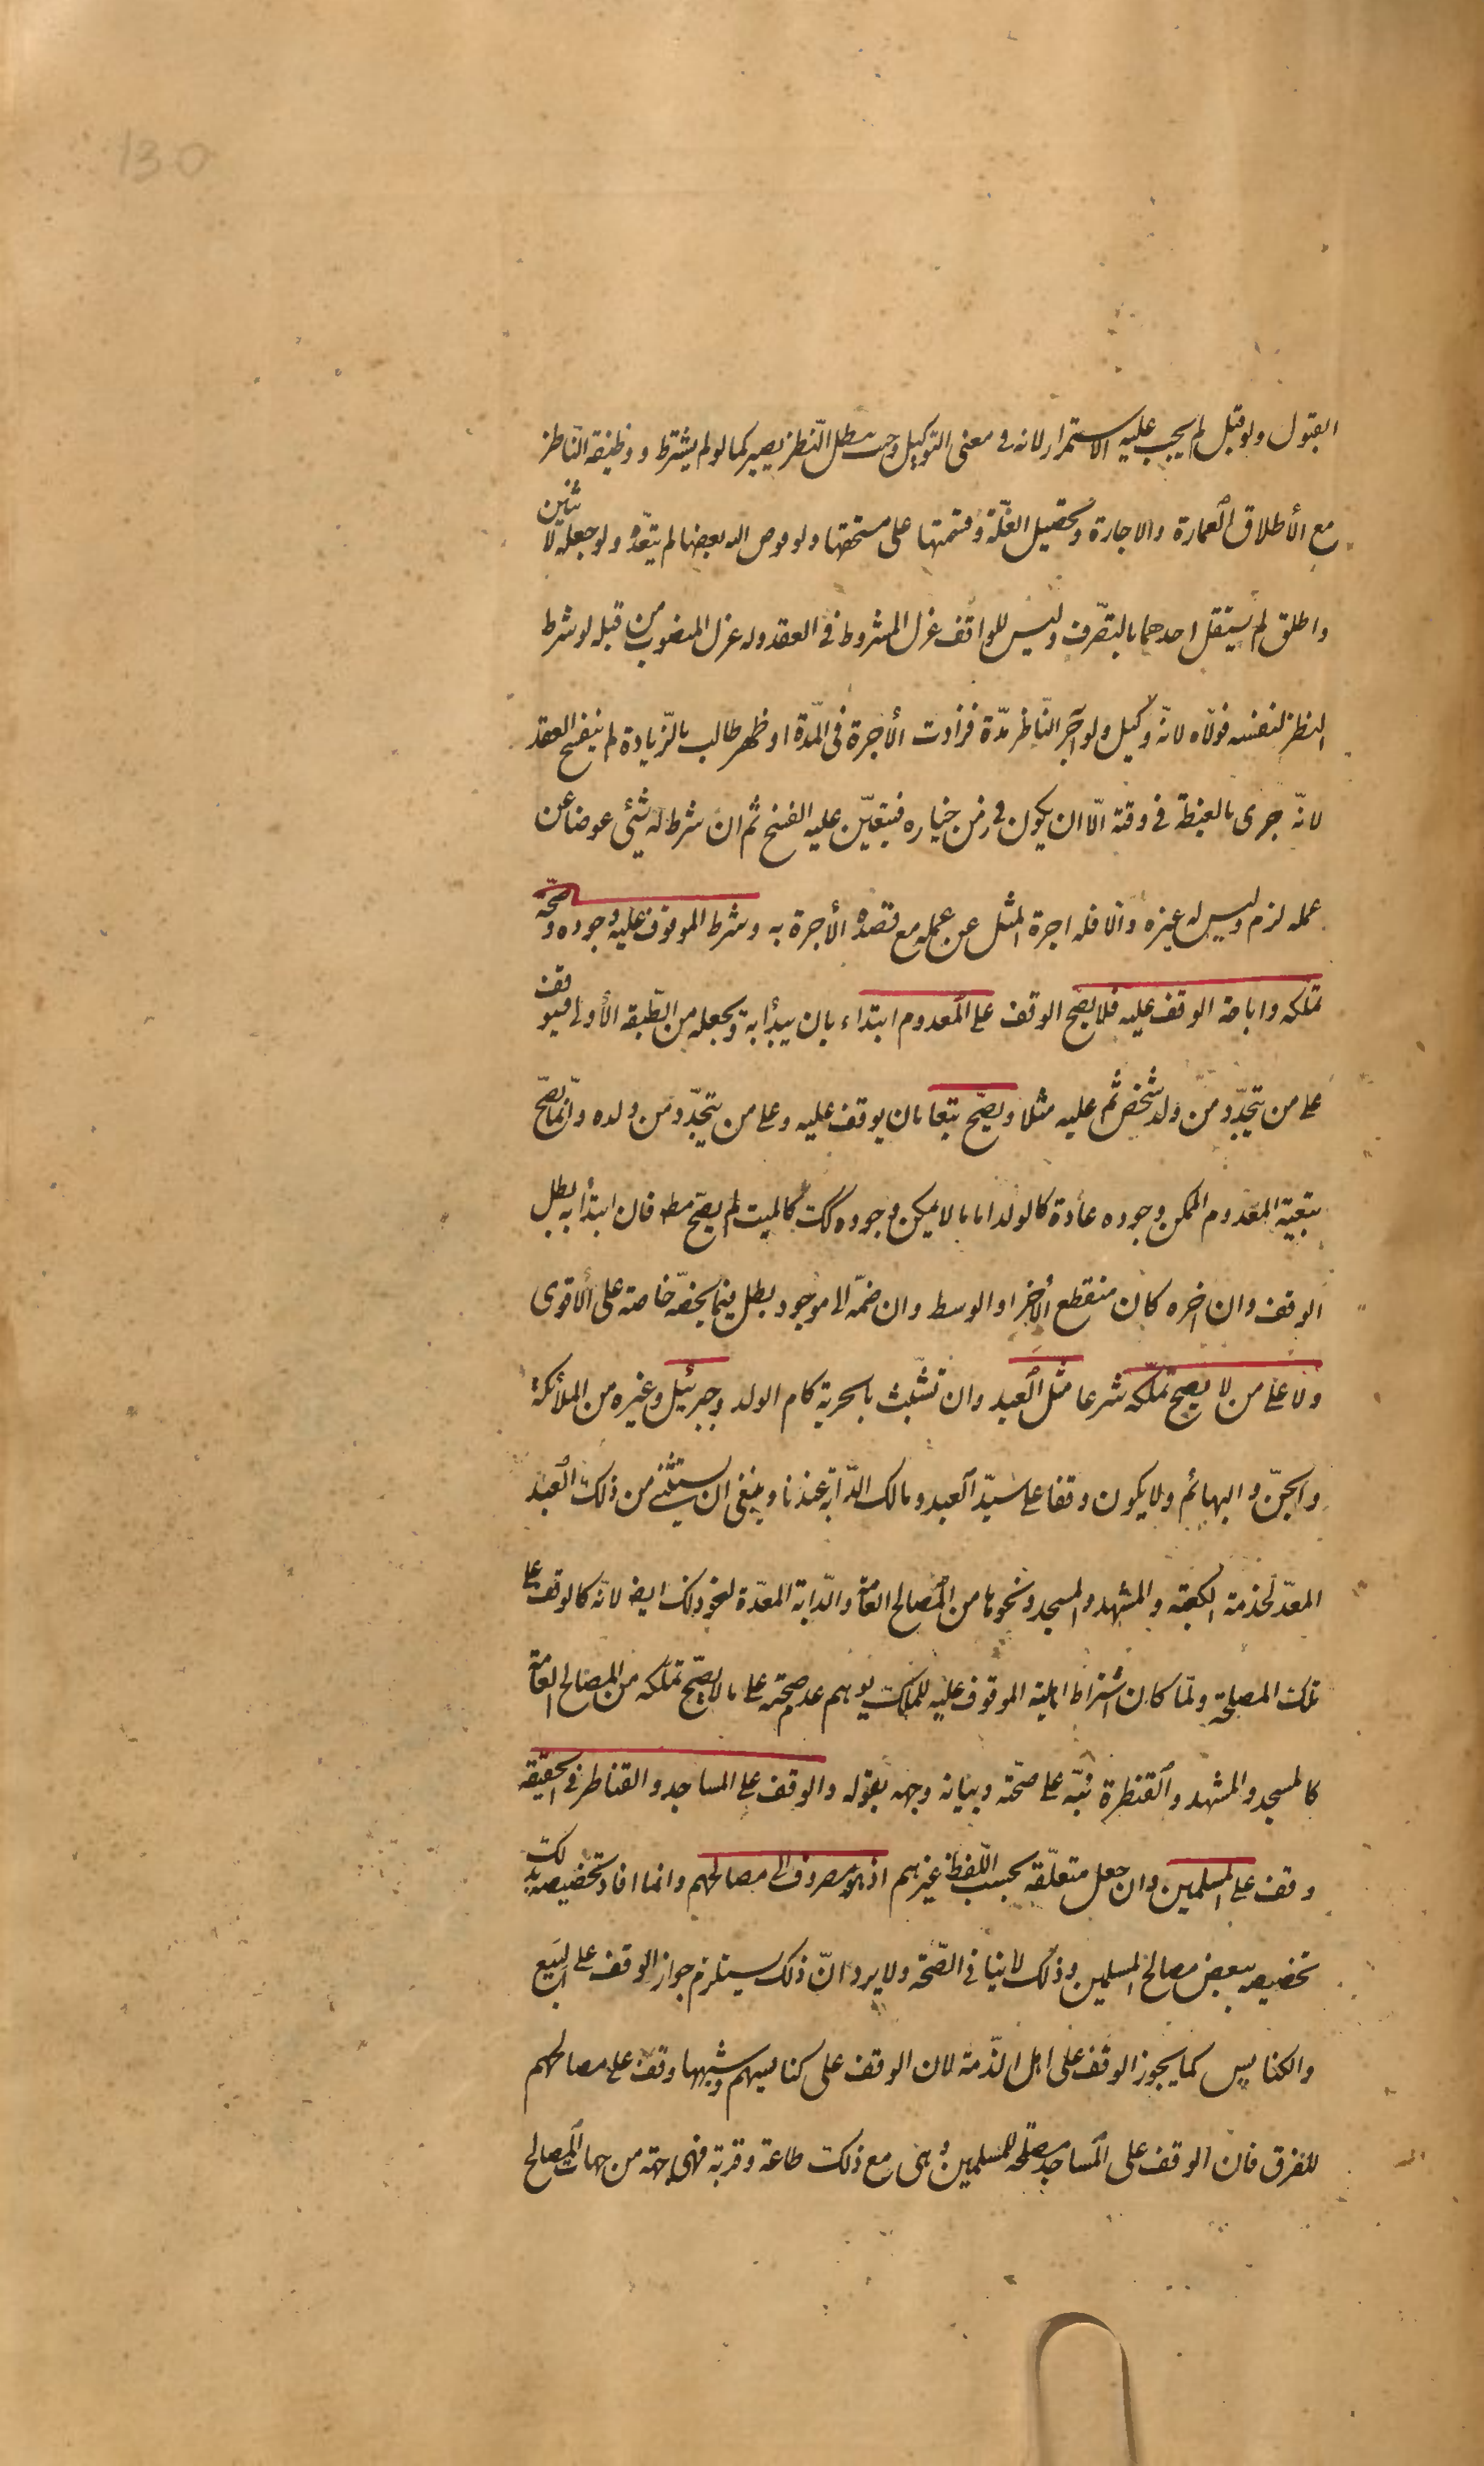 130
القبول ولو قبل لم يجب عليه الاستمرار لانه فى معنى التوكيل وحيث يبطل النّظر يصير كما لو لم يشترط ووظيفة النّاظر
مع الأطلاق العمارة والاجارة وتحصيل الغلّة وقسمتها على مستحقها ولو فوض اليه بعضها لم يتعدّه ولو جعله لاثنين
واطلق لم يستقل احدهما بالتصّرف وليس للواقف عزل المشروط فى العقد وله عزل المنصوب من قبله لو شرط
النظر لنفسه فولّاه لانّه وكيل ولو آجر النّاظر مدّة فزادت الأجرة فى المدّة او ظهر طالب بالزّيادة لم ينفسخ العقد
لانّه جرى بالغبطة فى وقته الّا ان يكون فى زمن خياره فيتعيّن عليه الفسخ ثم ان شرط له شئ عوضا عن
عمله لزم وليس له غيره والا فله اجرة المثل عن عمله مع قصده الأجرة به وشرط الموقوف عليه وجوده وصحّة
تملكه واباحة الوقف عليه فلا يصح الوقف على المعدوم ابتداء بان يبدأ به ويجعله من الطّبقة الأولى فيوقف
على من يتجدّد من ولد شخص ثم عليه مثلا ويصحّ تبعا بان يوقف عليه وعلى من يتجدّد من ولده وانّما يصحّ
تبعية المعدوم الممكن وجوده عادة كالولد اما ما لا يمكن وجوده كك كالميت لم يصحّ مط فان ابتدأ به بطل
الوقف وان اخره كان منقطع الأخر او الوسط وان ضمّه الى موجود بطل فيما يخصّه خاصة على الأقوى
ولا على من لا يصح تملّكه شرعا مثل العبد وان تشبّث بالحرية كام الولد وجبرئيل وغيره من الملائكة
والجنّ والبهائم ولا يكون وقفا على سيّد العبد ومالك الدّابّة عندنا وينبغى ان يستثنى من ذلك العبد
المعدّ لخدمة الكعبة والمشهد والمسجد ونحوها من المصالح العامة والدّابة المعدّة لنحو ذلك ايض لانّه كالوقف على
تلك المصلحة ولمّا كان اشتراط اهلية الموقوف عليه للملك يوهم عدم صحته على ما لا يصحّ تملكه من المصالح العامة
كالمسجد والمشهد والقنطرة نبّه على صحّته وبيانه وجهه بقوله والوقف على المساجد والقناطر فى الحقيقة
وقف على المسلمين وان جعل متعلّقه بحسب اللّفظ غيرهم اذ هو مصروف الى مصالحهم وانما افاد تخصيصه بذلك
تخصيصه ببعض مصالح المسلمين وذلك لا ينافى الصّحة ولا يرد انّ ذلك يستلزم جواز الوقف على البيع
والكنايس كما يجوز الوقف على اهل الذّمة لان الوقف على كنايسهم وشبهها وقف على مصالحهم
للفرق فان الوقف على المساجد مصلحة للمسلمين وهى مع ذلك طاعة وقربة فهى جهة من جهات المصالح